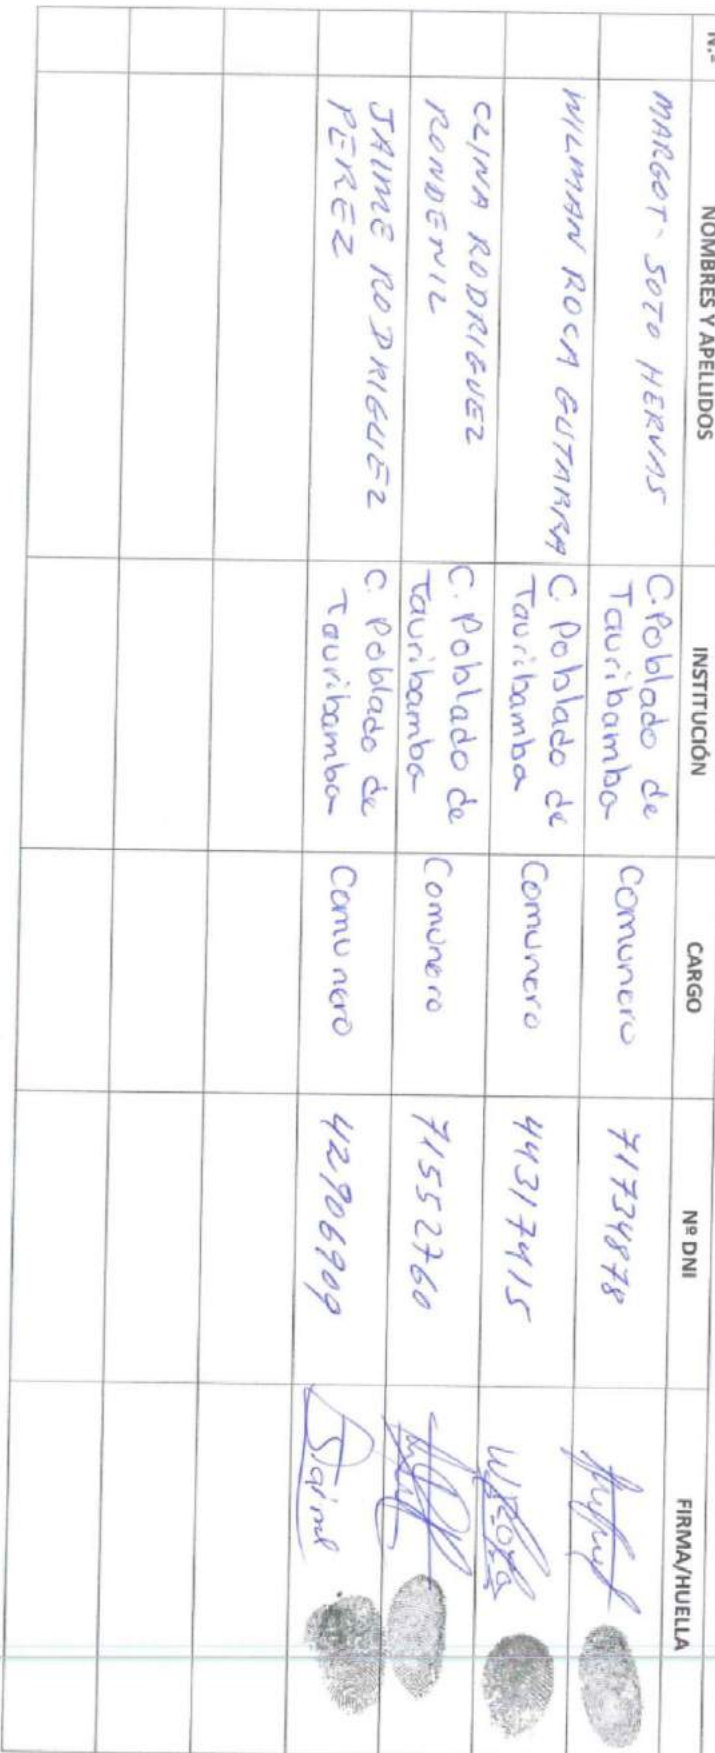 N.º NOMBRES Y APELLIDOS INSTITUCIÓN CARGO Nº DNI FIRMA/HUELLA
MARGOT SOTO HERVAS C. Poblado de Tauribamba Comunero 71734878
WILMAN ROCA GUTARRA C. Poblado de Tauribamba Comunero 44317415 WRoca
CLINA RODRIGUEZ RONDENIL C. Poblado de Tauribamba Comunero 71552760
JAIME RODRIGUEZ PÉREZ C. Poblado de Tauribamba Comunero 42906909 Jaime